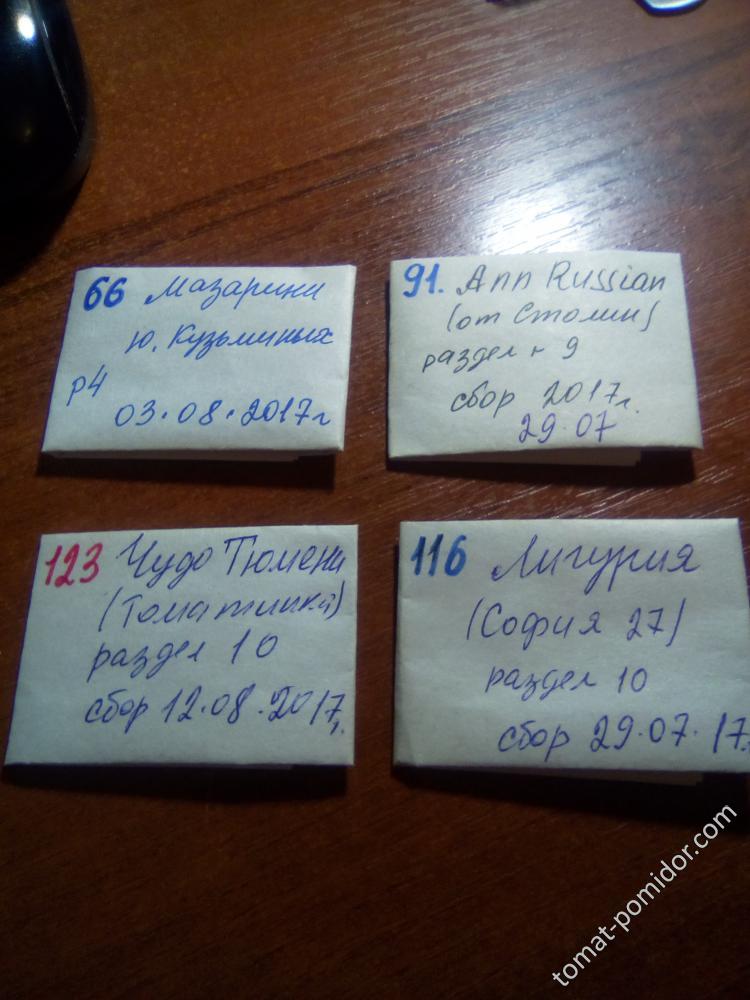 66 Мазарини
Ю. Кузьминых
р4
03.08.2017г
91. Ann Russian
(от Столин)
раздел 9
сбор 2017г.
29.07
123 Чудо Тюмени
(Томатинка)
раздел 10
сбор 12.08.2017г.
116 Лигурия
(София 27)
раздел 10
сбор 29.07.17г.
tomat-pomidor.com